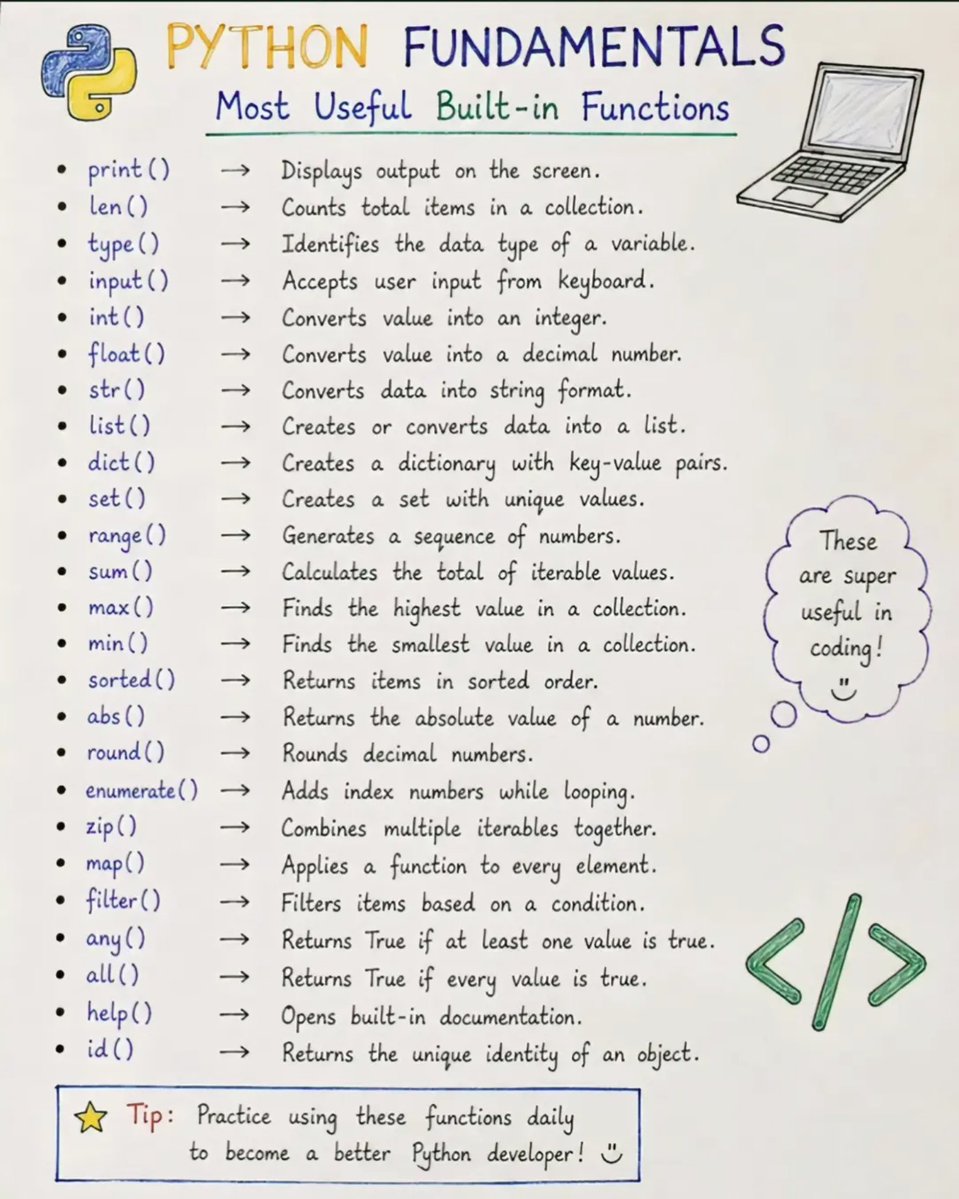 PYTHON FUNDAMENTALS
Most Useful Built-in Functions
• print() → Displays output on the screen.
• len() → Counts total items in a collection.
• type() → Identifies the data type of a variable.
• input() → Accepts user input from keyboard.
• int() → Converts value into an integer.
• float() → Converts value into a decimal number.
• str() → Converts data into string format.
• list() → Creates or converts data into a list.
• dict() → Creates a dictionary with key-value pairs.
• set() → Creates a set with unique values.
• range() → Generates a sequence of numbers.
• sum() → Calculates the total of iterable values.
• max() → Finds the highest value in a collection.
• min() → Finds the smallest value in a collection.
• sorted() → Returns items in sorted order.
• abs() → Returns the absolute value of a number.
• round() → Rounds decimal numbers.
• enumerate() → Adds index numbers while looping.
• zip() → Combines multiple iterables together.
• map() → Applies a function to every element.
• filter() → Filters items based on a condition.
• any() → Returns True if at least one value is true.
• all() → Returns True if every value is true.
• help() → Opens built-in documentation.
• id() → Returns the unique identity of an object.
These
are super
useful in
coding!
</>
Tip: Practice using these functions daily
to become a better Python developer!